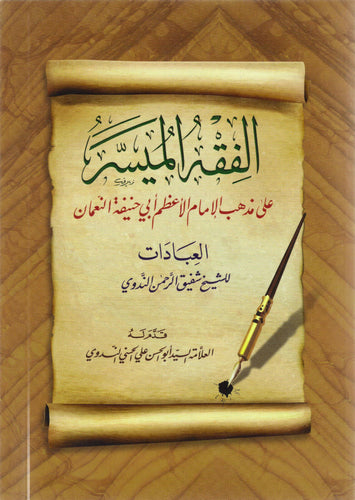 الفِقْهُ المُيَسَّر
على مذهب الإمام الأعظم أبي حنيفة النعمان
العِبَادَات
للشيخ شفيق الرحمٰن النَّدوي
قَدَّمَ لَهُ
العلّامة السيد أبو الحسن علي الحسني الندوي